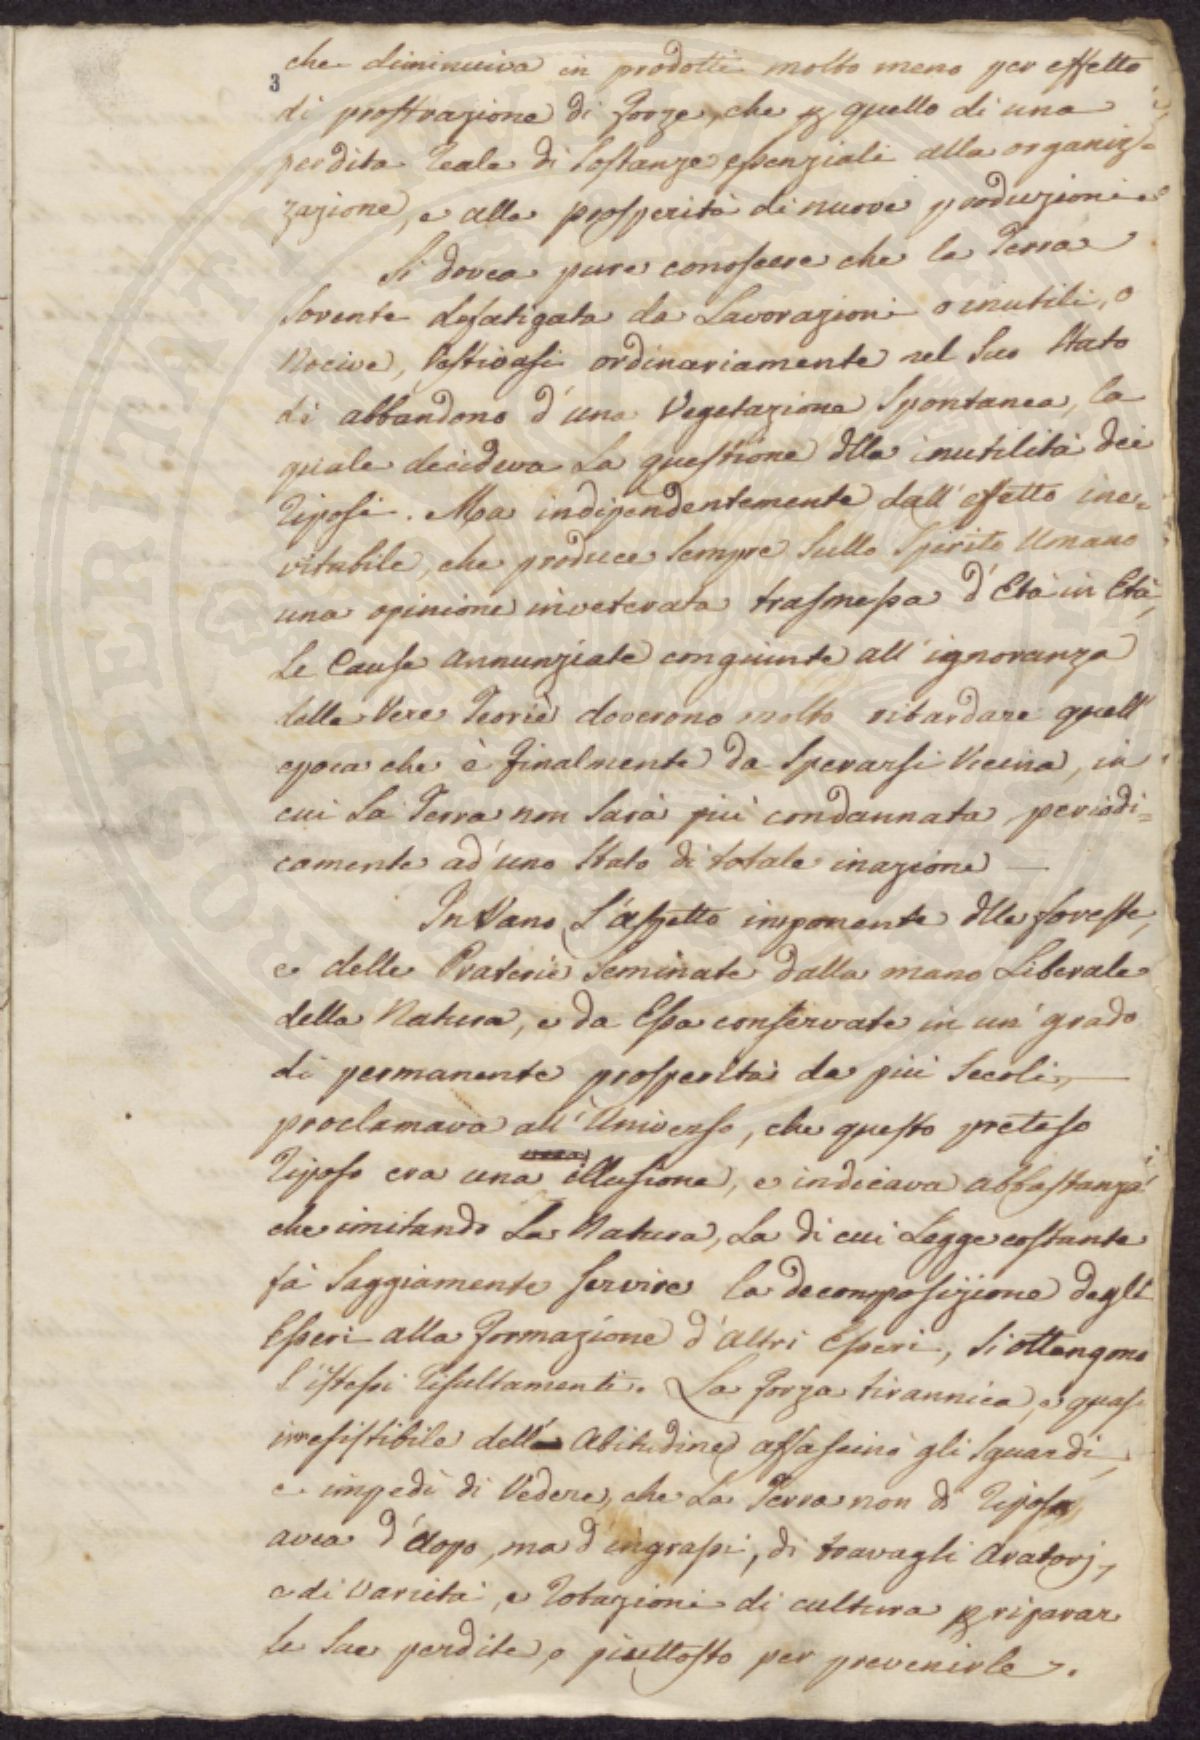 3
che diminuiva in prodotti molto meno per effetto
di prostrazione di forze, che p quello di una
perdita reale di sostanze essenziali alla organiz=
zazione, e alla prosperità di nuove produzioni.
Si dovea pure conoscere che la Terra
sovente defatigata da Lavorazioni o inutili, o
Nocive, Vestivasi ordinariamente nel suo Stato
di abbandono d'una Vegetazione Spontanea, la
quale decideva La questione dlla inutilità dei
riposi. Ma indipendentemente dall'effetto ine=
vitabile, che produce sempre sullo Spirito Umano
una opinione inveterata trasmessa d'Età in Età,
Le Cause annunziate congiunte all'ignoranza
delle Vere Teorie doverono molto ritardare quell'
epoca che è finalmente da Sperarsi Vicina, in
cui La Terra non Sarà più condannata periodi=
camente ad'uno Stato di totale inazione —
In Vano L'aspetto imponente dlle foreste,
e delle Praterie Seminate dalla mano Liberale
della Natura, e da Essa conservate in un'grado
di permanente prosperità da più Secoli,
proclamava all'Universo, che questo preteso
riposo era una illusione, e indicava abbastanza
che imitando La Natura, La di cui Legge costante
fà Saggiamente servire la decomposizione degli
Esseri alla formazione d'altri Esseri, Si ottengono
L'istessi risultamenti. La forza tirannica, e quasi
irresistibile dell' Abitudine affascinò gli Sguardi,
e impedì di Vedere, che La Terra non di riposi
avea d'uopo, ma d'ingrassi, di travagli Aratorj,
e di varietà, e rotazioni di cultura p riparar
le Sue perdite, o piuttosto per prevenirle.